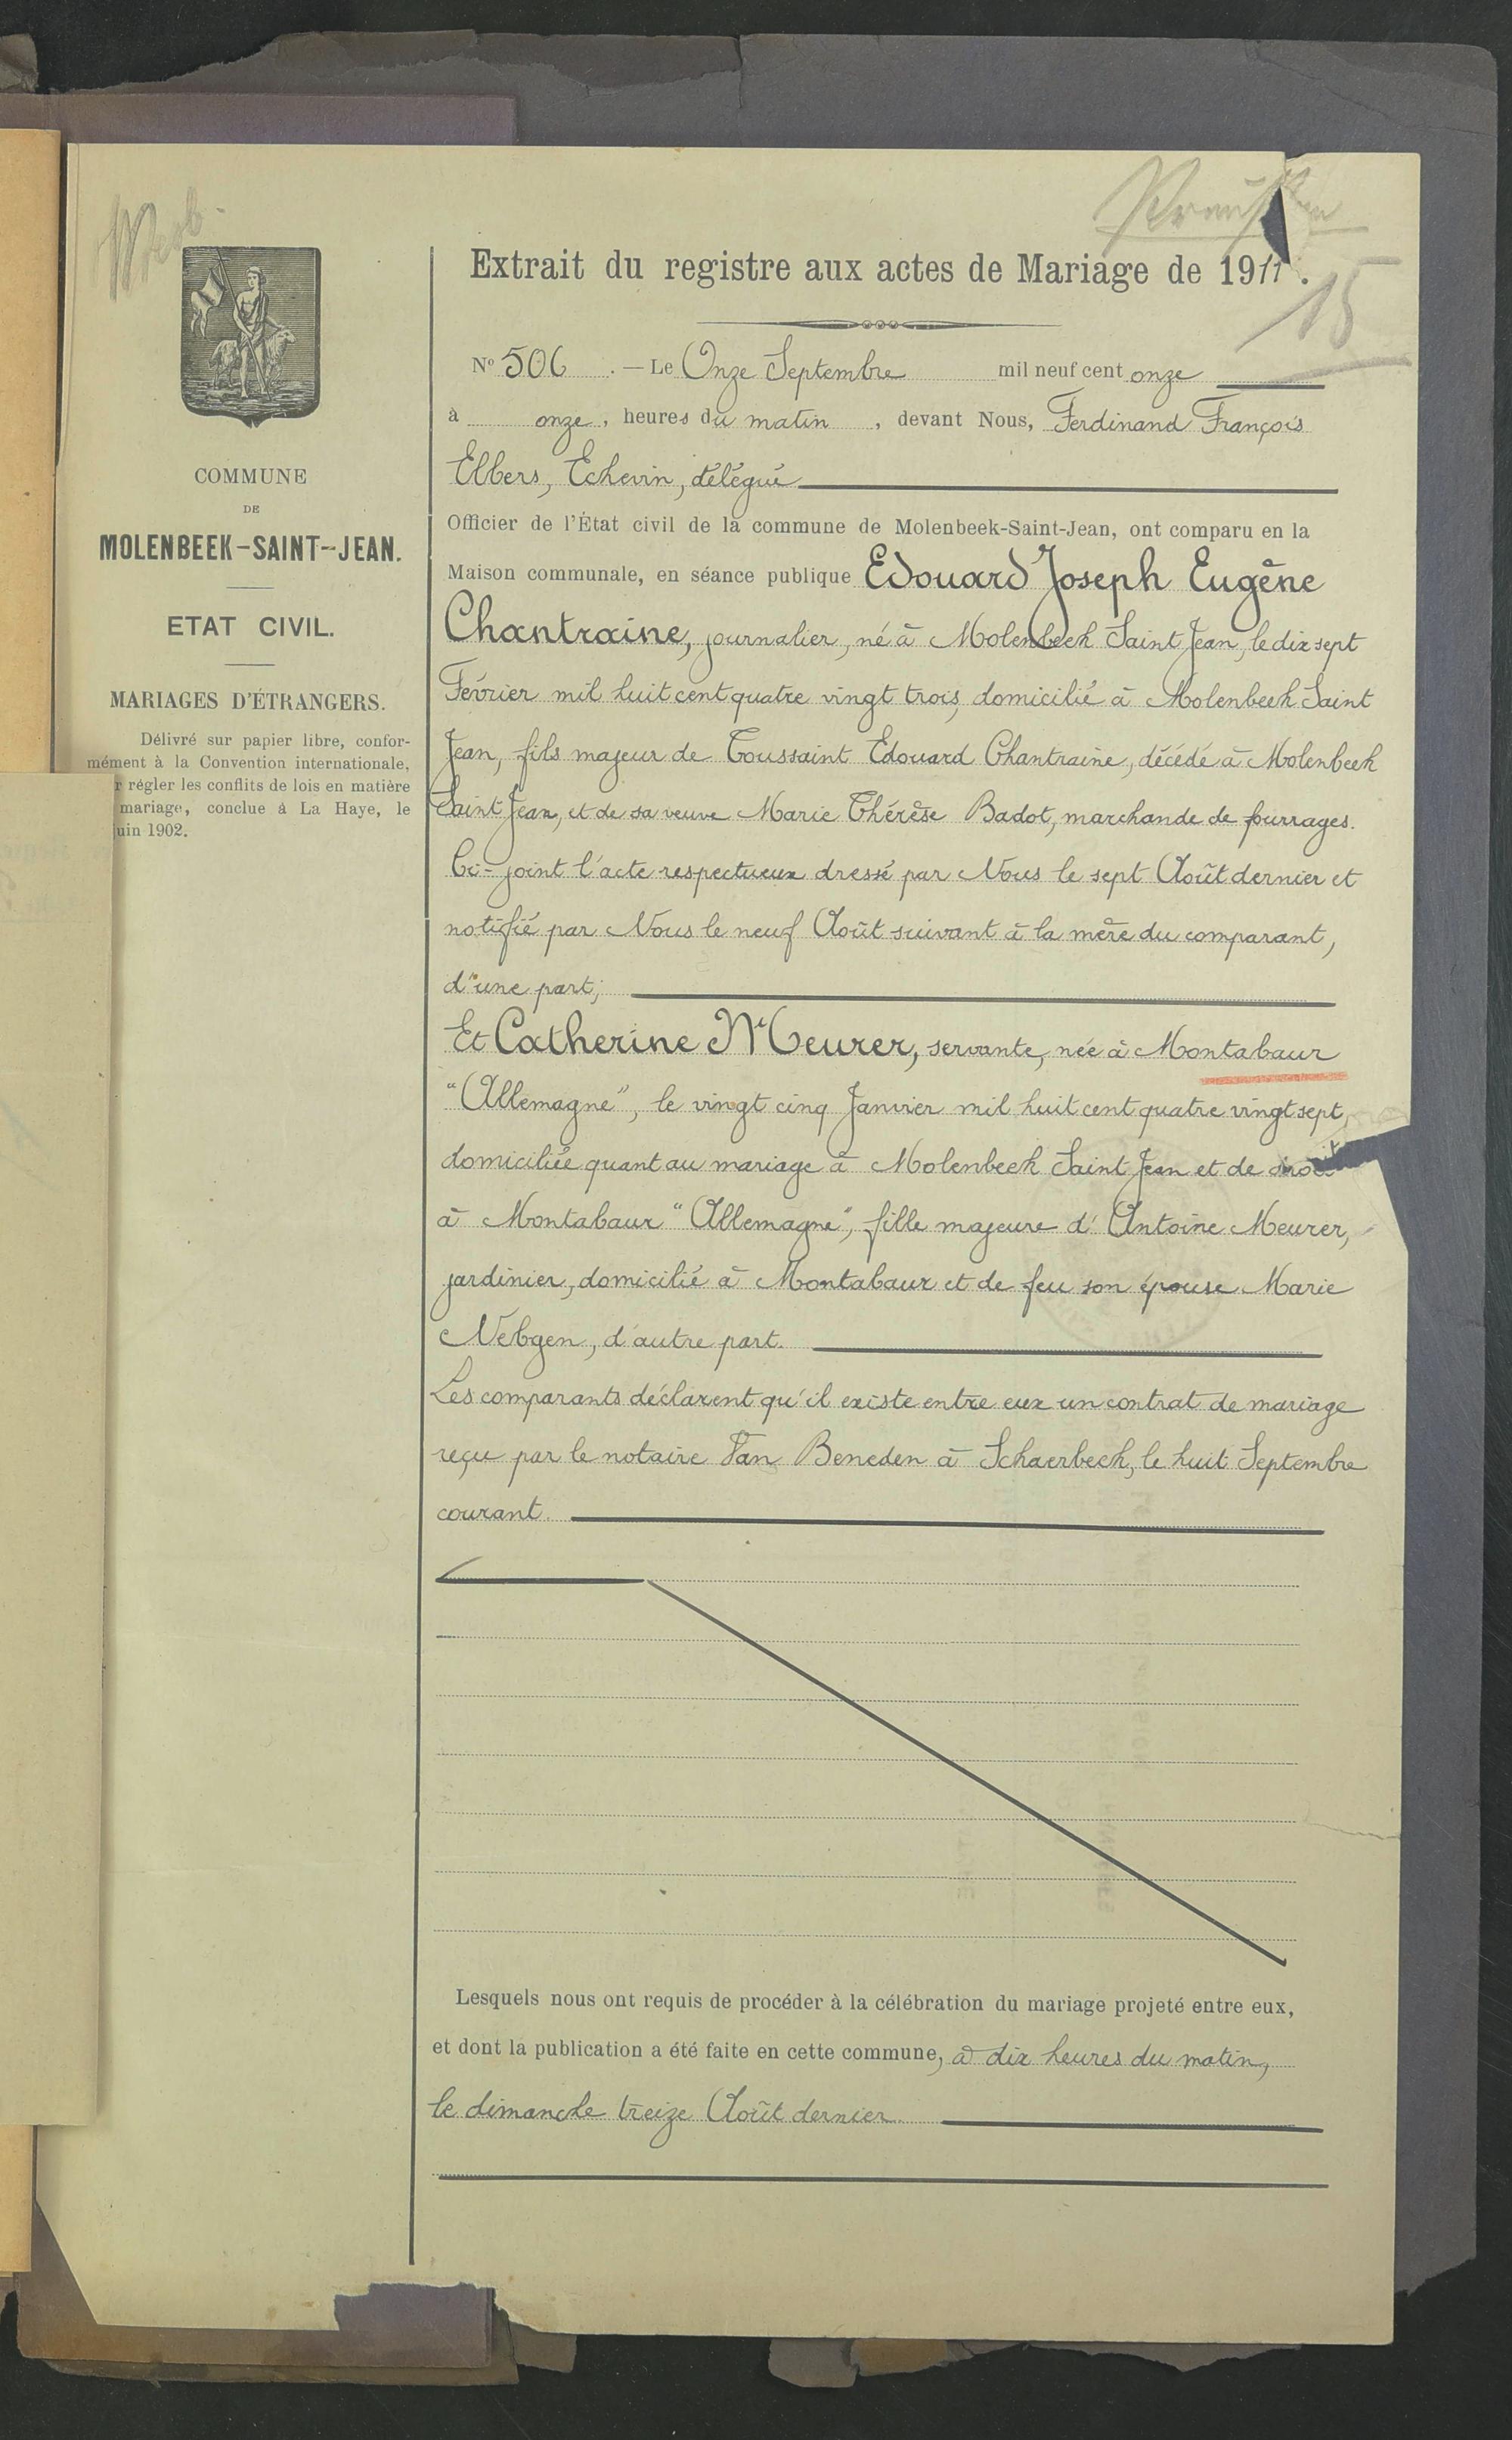 Preußen
15
COMMUNE
DE
MOLENBEEK-SAINT-JEAN.
ETAT CIVIL.
MARIAGES D'ÉTRANGERS.
Délivré sur papier libre, confor-
mément à la Convention internationale,
r régler les conflits de lois en matière
mariage, conclue à La Haye, le
juin 1902.
Extrait du registre aux actes de Mariage de 1911.
N° 506. — Le Onze Septembre mil neuf cent onze
à onze, heures du matin, devant Nous, Ferdinand François
Elbers, Echevin, délégué
Officier de l'État civil de la commune de Molenbeek-Saint-Jean, ont comparu en la
Maison communale, en séance publique Edouard Joseph Eugène
Chantraine, journalier, né à Molenbeek Saint Jean, le dix sept
Février mil huit cent quatre vingt trois, domicilié à Molenbeek Saint
Jean, fils majeur de Toussaint Edouard Chantraine, décédé à Molenbeek
Saint Jean, et de sa veuve Marie Thérèse Badot, marchande de fourrages.
Ci-joint l'acte respectueux dressé par Nous le sept Août dernier et
notifié par Nous le neuf Août suivant à la mère du comparant,
d'une part;
Et Catherine Meurer, servante, née à Montabaur
"Allemagne", le vingt cinq Janvier mil huit cent quatre vingt sept,
domiciliée quant au mariage à Molenbeek Saint Jean et de droit
à Montabaur "Allemagne", fille majeure d'Antoine Meurer,
jardinier, domicilié à Montabaur et de feu son épouse Marie
Nebgen, d'autre part.
Les comparants déclarent qu'il existe entre eux un contrat de mariage
reçu par le notaire Van Beneden à Schaerbeek, le huit Septembre
courant.
Lesquels nous ont requis de procéder à la célébration du mariage projeté entre eux,
et dont la publication a été faite en cette commune, à dix heures du matin,
le dimanche treize Août dernier.